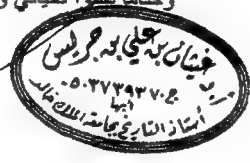 أ.د/
غيثان بن علي بن جريس
ج. ٠٥٠٣٧٣٩٣٧٠
أبها
أستاذ التاريخ بجامعة الملك خالد